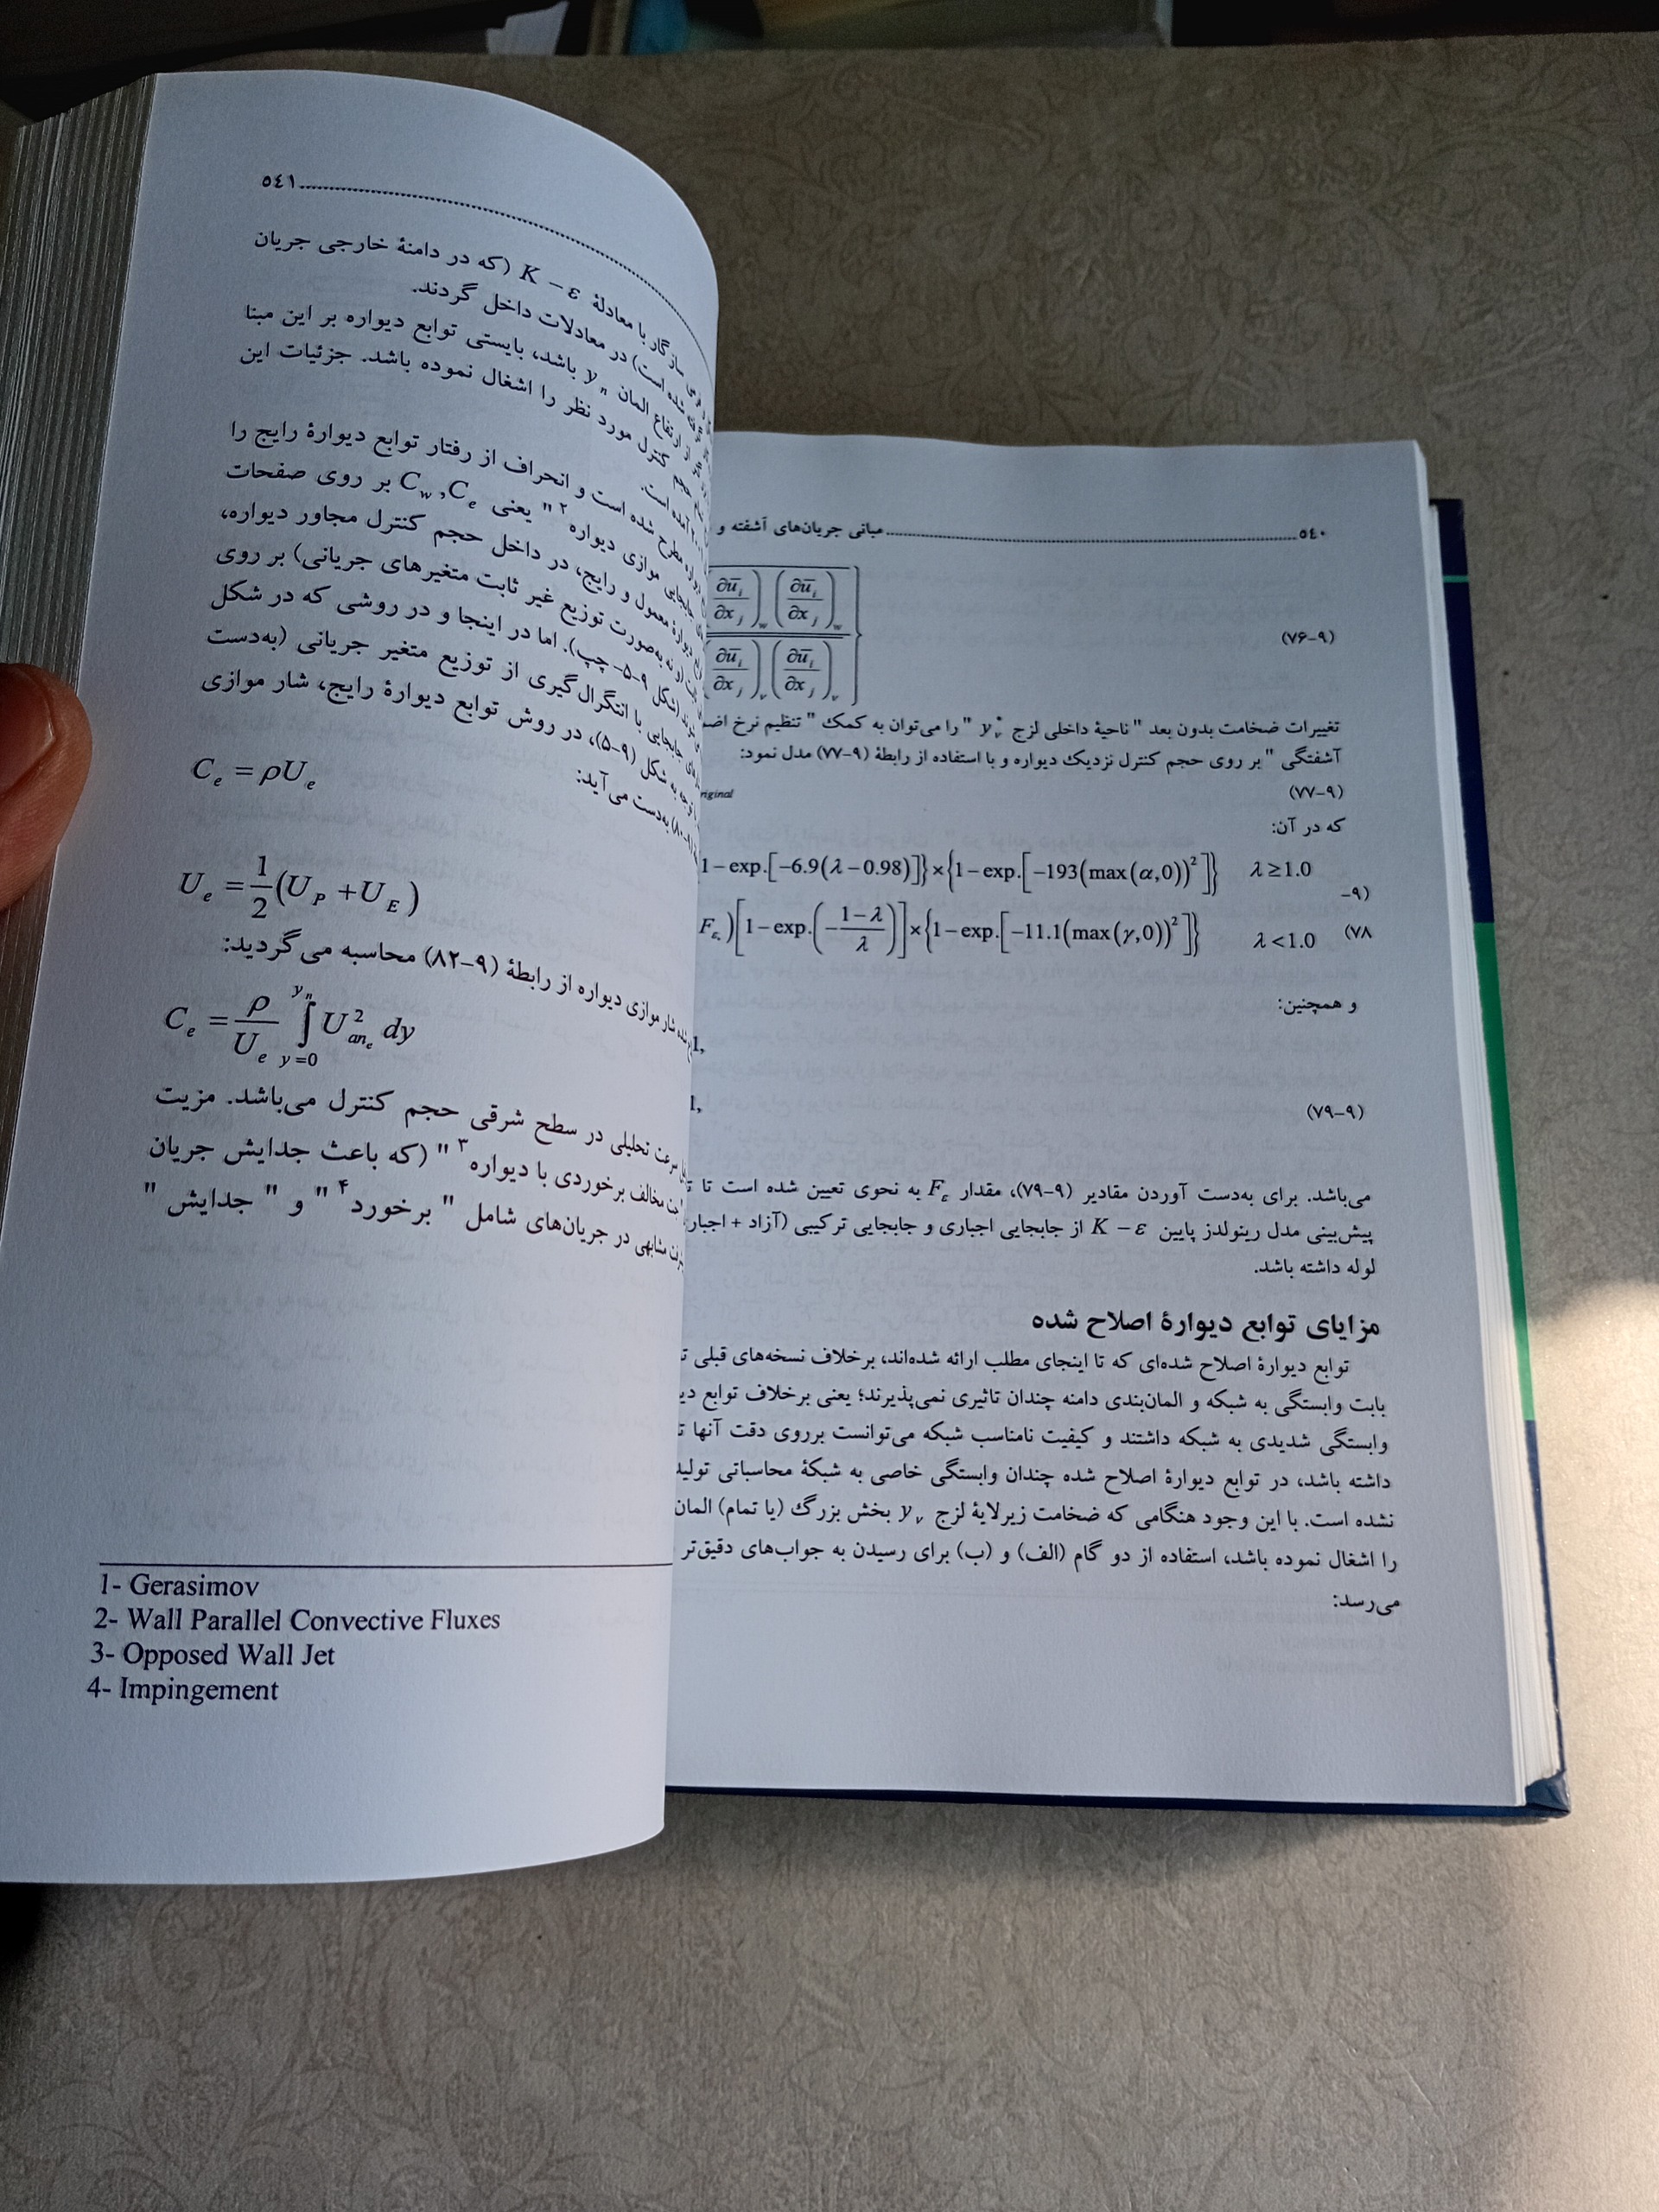 ٥٤٠ مبانی جریان‌های آشفته و
(۷۶-۹)
∂ū_i/∂x_j)_w (∂ū_i/∂x_j)_w
∂ū_i/∂x_j)_v (∂ū_i/∂x_j)_v
تغییرات ضخامت بدون بعد " ناحیهٔ داخلی لزج y*_v " را می‌توان به کمک " تنظیم نرخ
آشفتگی " بر روی حجم کنترل نزدیک دیواره و با استفاده از رابطهٔ (۹-۷۷) مدل نمود:
(۷۷-۹)
که در آن:
1−exp.[−6.9(λ−0.98)]}×{1−exp.[−193(max(α,0))²]} λ≥1.0
F_ε,)[1−exp.(−(1−λ)/λ)]×{1−exp.[−11.1(max(γ,0))²]} λ<1.0
(۹-
۷۸)
و همچنین:
1,
1,
(۷۹-۹)
می‌باشد. برای به‌دست آوردن مقادیر (۹-۷۹)، مقدار F_ε به نحوی تعیین شده است تا
پیش‌بینی مدل رینولدز پایین K − ε از جابجایی اجباری و جابجایی ترکیبی (آزاد + اجباری
لوله داشته باشد.
مزایای توابع دیوارهٔ اصلاح شده
توابع دیوارهٔ اصلاح شده‌ای که تا اینجای مطلب ارائه شده‌اند، برخلاف نسخه‌های قبلی
بابت وابستگی به شبکه و المان‌بندی دامنه چندان تاثیری نمی‌پذیرند؛ یعنی برخلاف توابع
وابستگی شدیدی به شبکه داشتند و کیفیت نامناسب شبکه می‌توانست برروی دقت آنها
داشته باشد، در توابع دیوارهٔ اصلاح شده چندان وابستگی خاصی به شبکهٔ محاسباتی تولید
نشده است. با این وجود هنگامی که ضخامت زیرلایهٔ لزج y_v بخش بزرگ (یا تمام) المان
را اشغال نموده باشد، استفاده از دو گام (الف) و (ب) برای رسیدن به جواب‌های دقیق‌تر
می‌رسد:
٥٤١
سازگار با معادلهٔ K − ε (که در دامنهٔ خارجی جریان
شده است) در معادلات داخل گردند.
از ارتفاع المان y_n باشد، بایستی توابع دیواره بر این مبنا
حجم کنترل مورد نظر را اشغال نموده باشد. جزئیات این
آمده است.
مطرح شده است و انحراف از رفتار توابع دیوارهٔ رایج را
جابجایی موازی دیواره ۲ " یعنی C_w , C_e بر روی صفحات
دیوارهٔ معمول و رایج، در داخل حجم کنترل مجاور دیواره،
(و نه به‌صورت توزیع غیر ثابت متغیرهای جریانی) بر روی
(شکل ۹-۵- چپ). اما در اینجا و در روشی که در شکل
جابجایی با انتگرال‌گیری از توزیع متغیر جریانی (به‌دست
توجه به شکل (۹-۵)، در روش توابع دیوارهٔ رایج، شار موازی
به‌دست می‌آید:
C_e = ρU_e
U_e = 1/2 (U_P + U_E)
شار موازی دیواره از رابطهٔ (۹-۸۲) محاسبه می‌گردید:
C_e = ρ/U_e ∫_{y=0}^{y_n} U²_{an_e} dy
سرعت تحلیلی در سطح شرقی حجم کنترل می‌باشد. مزیت
مخالف برخوردی با دیواره ۳ " (که باعث جدایش جریان
مشابهی در جریان‌های شامل " برخورد ۴ " و " جدایش "
1- Gerasimov
2- Wall Parallel Convective Fluxes
3- Opposed Wall Jet
4- Impingement